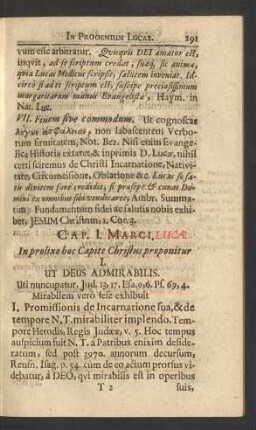 IN PROOEMIUM LUCAE. 291
vum esse arbitratur. Quisquis DEI amator est,
inqvit, ad se scriptum credat, suæq́; sic animæ,
qvia Lucas Medicus scripsit, salutem inveniat. Id-
circo si ad se scriptum est, suscipe preciosissimum
margaritarum munus Evangelistæ, Haym. in
Nat. Luc.
VII. Finem sive commodum. Ut cognoscas
λόγων ἀσφάλειαν, non labascentem Verbo-
rum firmitatem, Not. Bez. Nisi enim Evange-
lica Historia extaret, & inprimis D. Lucæ, nihil
certi sciremus de Christi Incarnatione, Nativi-
tate, Circumcisione, Oblatione &c. Lucas se sa-
tis divitem fore credidit, si præsepe & cunas Do-
mini ex omnibus sibi vendicaret, Ambr. Summa-
tim: Fundamentum fidei ac salutis nobis exhi-
bet, JESUM Christum, 1. Cor. 3.
CAP. I. MARCI, LUCÆ
In prolixo hoc Capite Christus proponitur
I.
UT DEUS ADMIRABILIS.
Uti nuncupatur, Jud. 13. 17. Esa. 9, 6. Ps. 69, 4.
Mirabilem verò sese exhibuit
I. Promissionis de Incarnatione sua, & de
tempore N. T. mirabiliter implendo. Tem-
pore Herodis, Regis Judææ, v. 5. Hoc tempus
auspicium suit N. T. à Patribus enixim deside-
ratum, sed post 3970. annorum decursum,
Reusn. Isag. p. 54. cum de eo actum prorsus vi-
debatur, à DEO, qvi mirabilis est in operibus
T 2 suis,